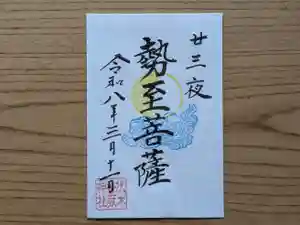 廿三夜
勢至菩薩
令和八年三月十一日